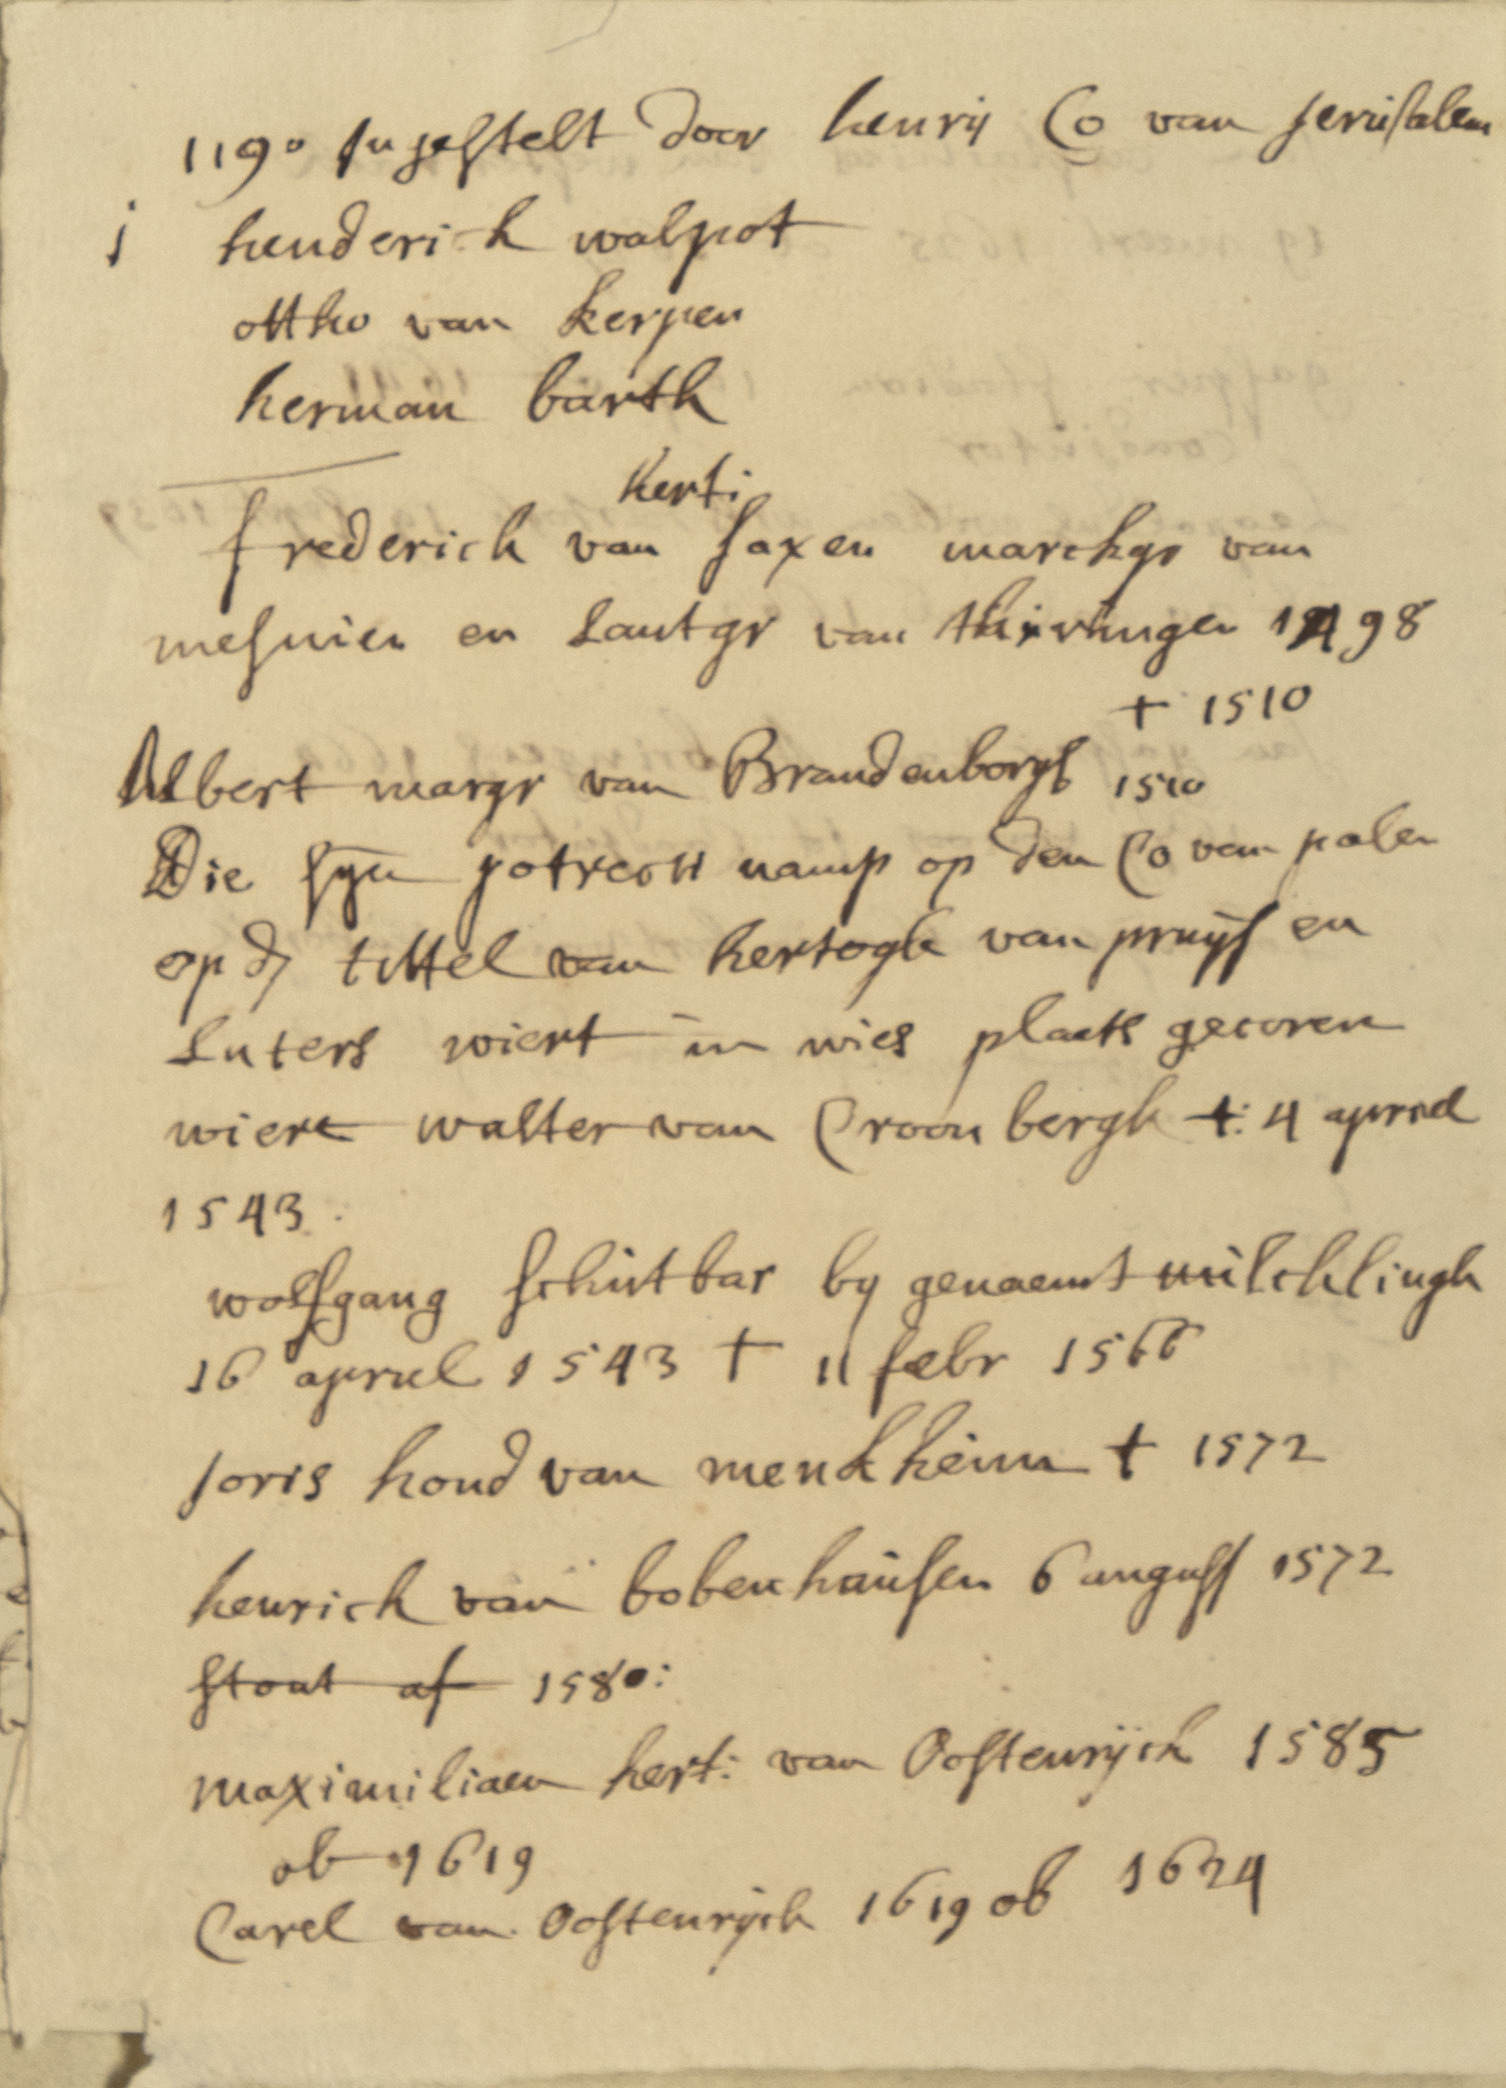 1190 Ingestelt door henrij Co van Jerusalem
j henderick walpot
ottho van kerpen
herman barth
herti
frederich van saxen marckgr van
mesnien en Lantgr van thiringen 1498
+ 1510
Albert margr van Brandenborgh 1510
Die syn namp op den Co van polen
op d tittel van hertogh van pruys en
Luters wiert in wies plaets gecoren
wiert walter van Croonbergh +: 4 april
1543.
wolfgang schutbar by genaemt milchlingh
16 april 1543 + 11 febr 1566
Joris hond van menckheim + 1572
henrich van bobenhausen 6 august 1572
stont af 1580:
maximiliaen hert: van Oostenrijck 1585
ob 1619
Carel van Oostenrijck 1619 ob 1624